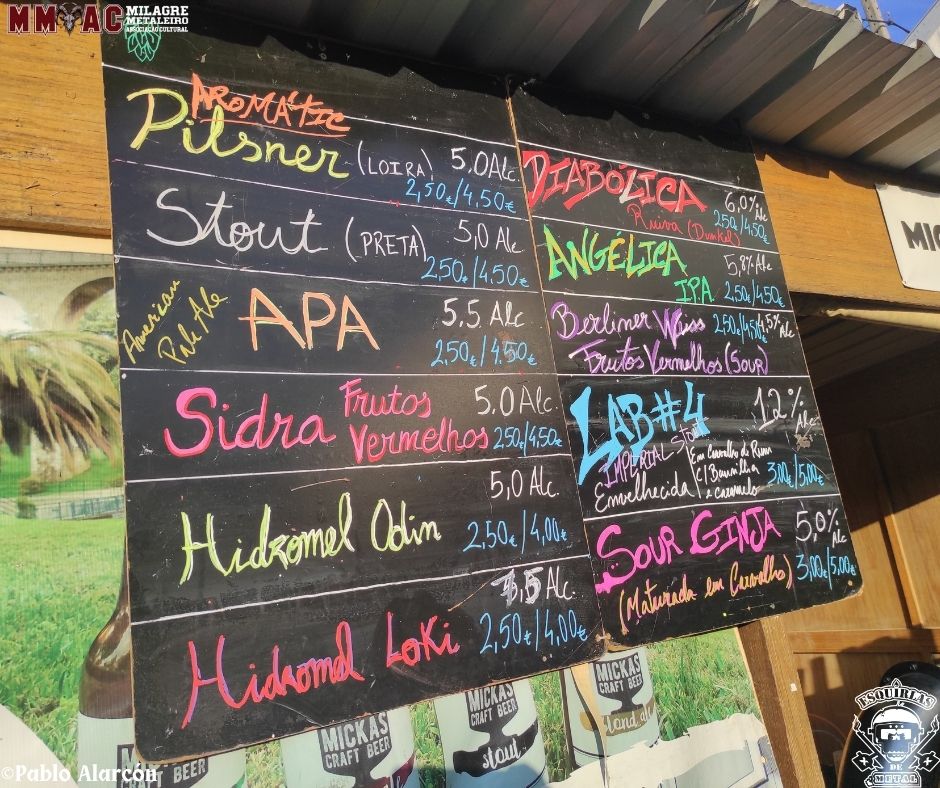 MM AC MILAGRE
METALEIRO
ASSOCIAÇÃO CULTURAL
AROMÁTIC
Pilsner (LOIRA) 5.0 Alc.
2,50€/4,50€
Stout (PRETA) 5,0 Alc.
2,50€/4,50€
American
Pale Ale
APA 5.5. Alc.
2,50€/4.50€
Sidra Frutos
Vermelhos 5.0 Alc.
2,50€/4,50€
Hidromel Odin 5,0 Alc.
2,50€/4,00€
Hidromel Loki ,5 Alc.
2,50€/4,00€
DIABÓLICA 6,0% Alc
Ruiva (Dunkel) 2,50€/4,50€
ANGÉLICA 5,8% Alc
IPA 2,50€/4,50€
Berliner Weiss 2,50€/4,50€ 4,5% Alc
Frutos Vermelhos (SOUR)
LAB#4 12% Alc
IMPERIAL STOUT
Envelhecida
Em Carvalho de Rum
C/ Baunilha
e caramelo
3,00€/5,00€
SOUR GINJA 5,0% Alc
(Maturada em Carvalho) 3,00€/5,00€
MICKAS
CRAFT BEER
MICKAS
CRAFT BEER
stout
MICKAS
CRAFT BEER
©Pablo Alarcón
ESQUIRLAS
DE
METAL